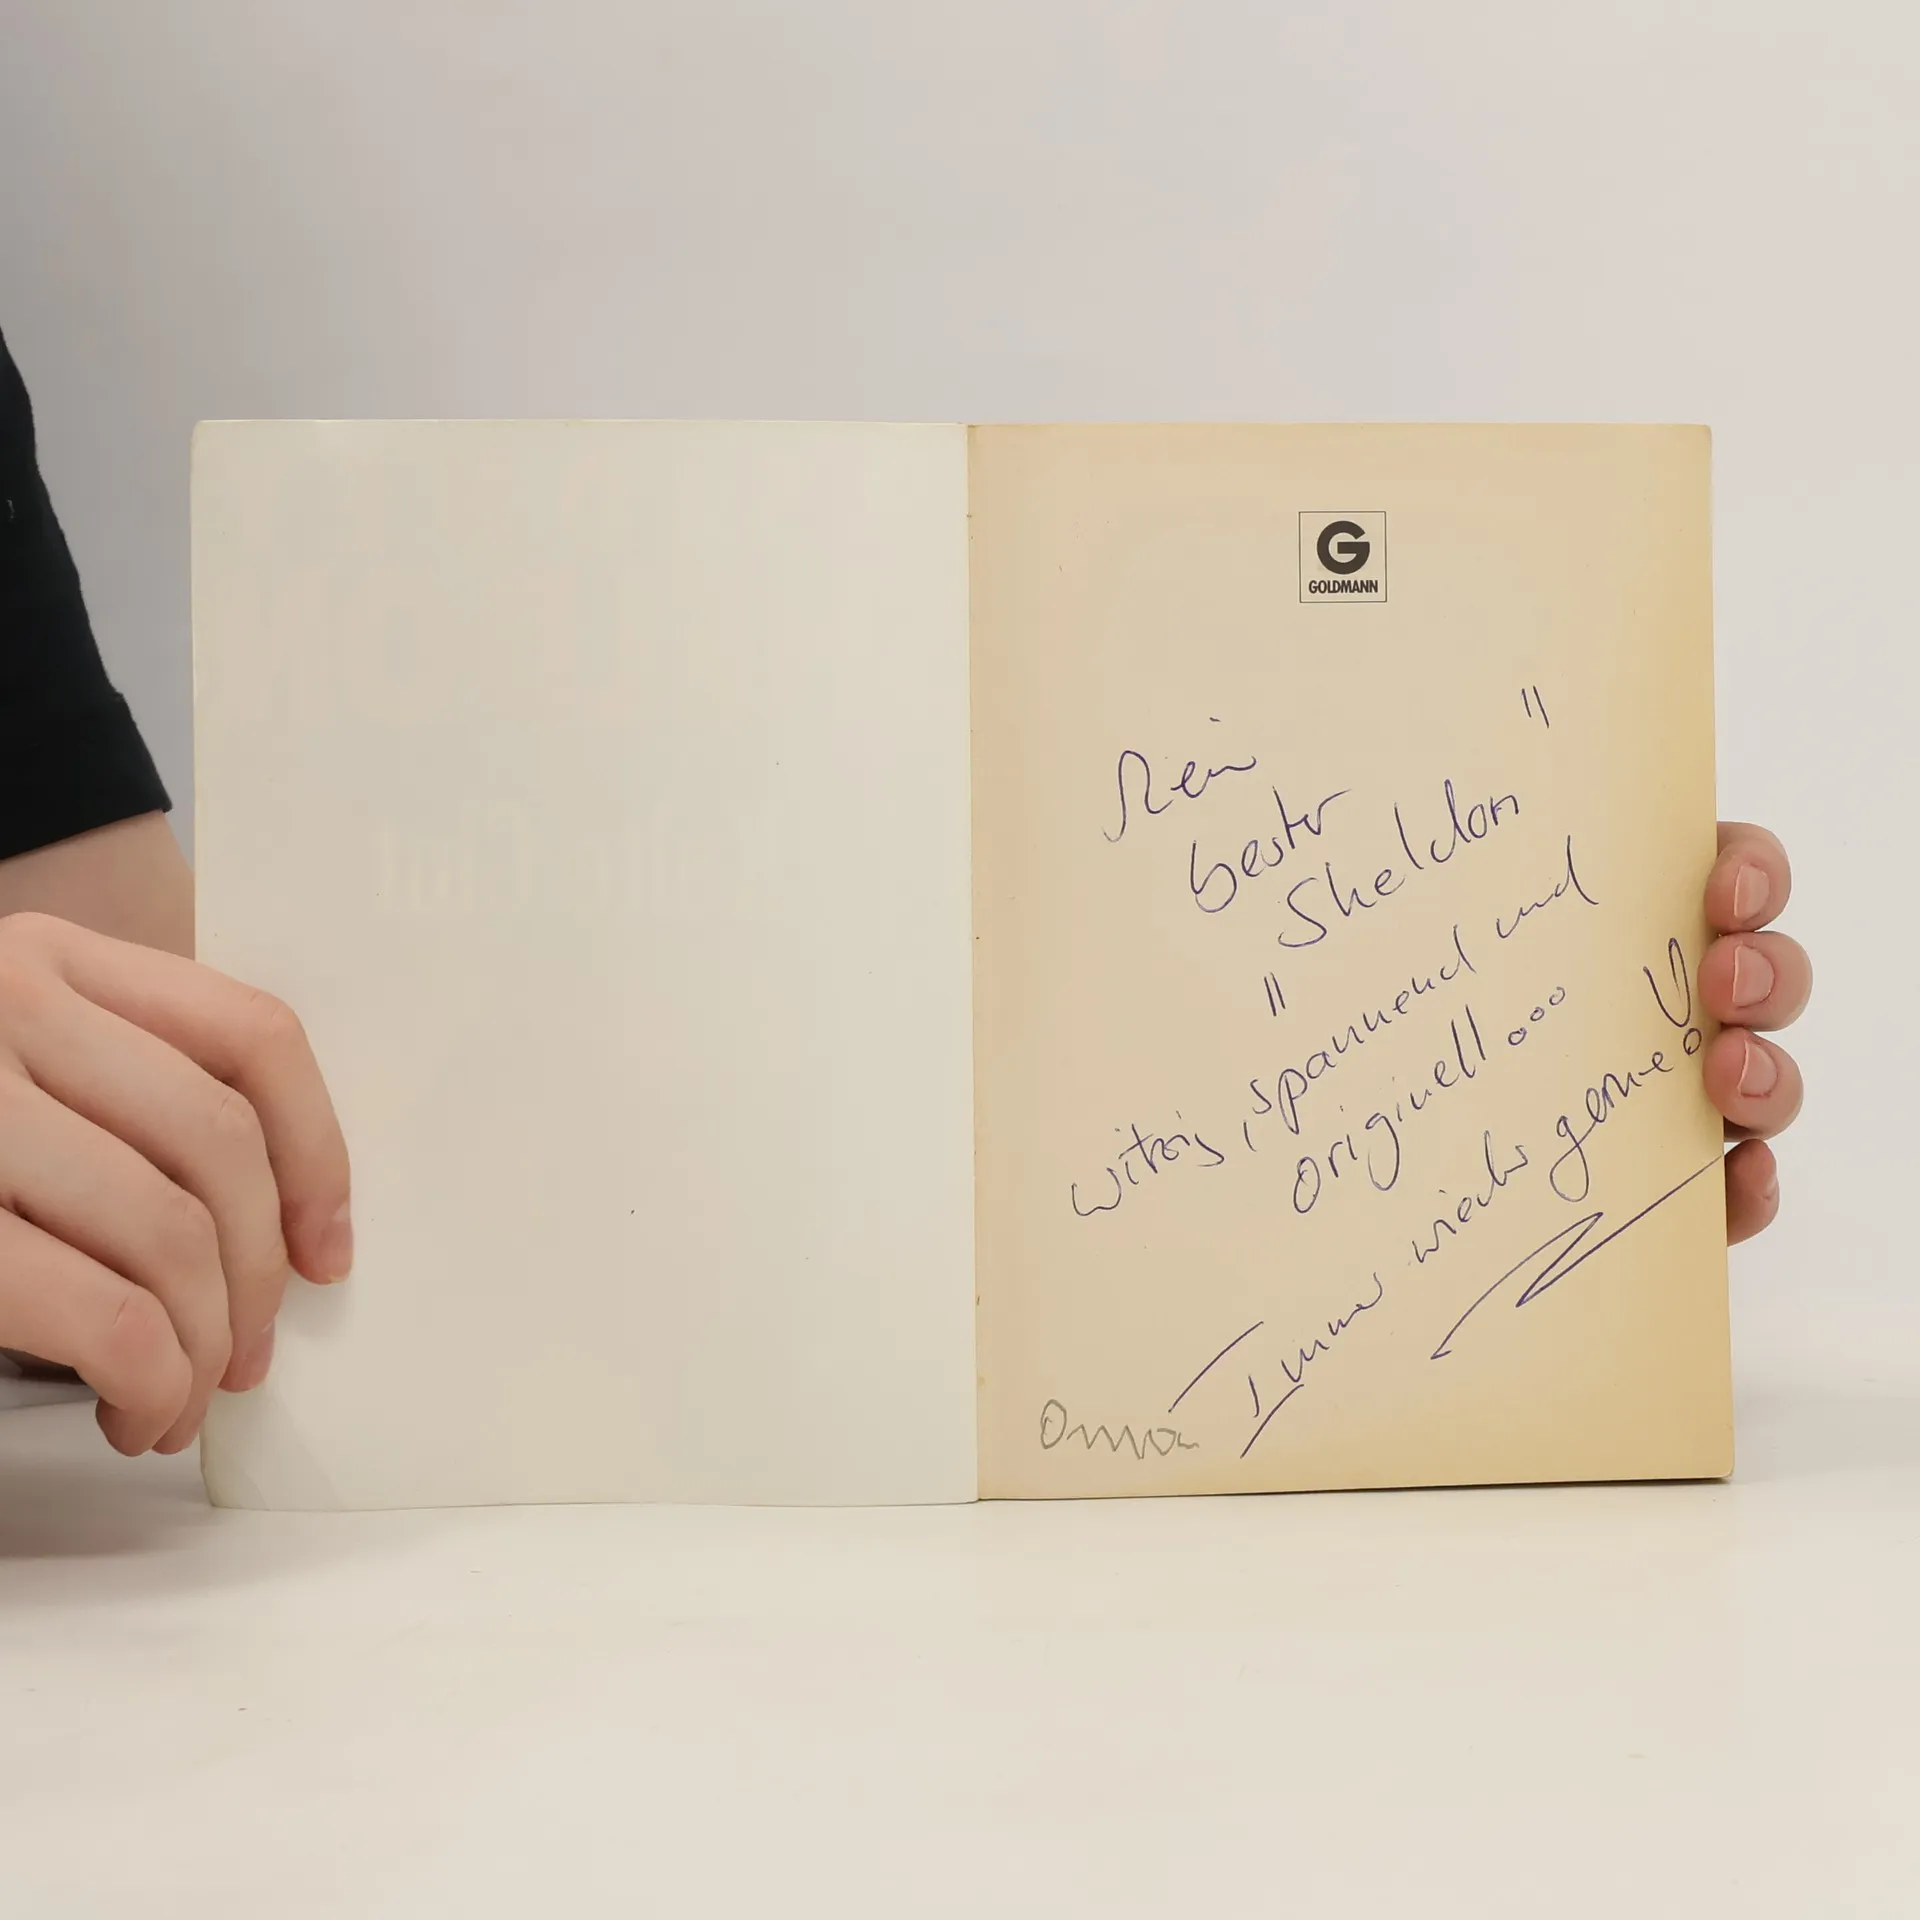 G
GOLDMANN
Mein
bester
Sheldon "
" witzig, spannend und
originell ...
Immer wieder gerne!